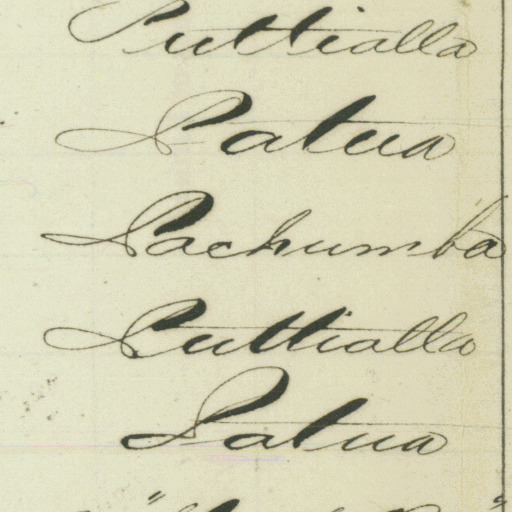 Puttialla
Patua
Pachumba
Puttialla
Patua